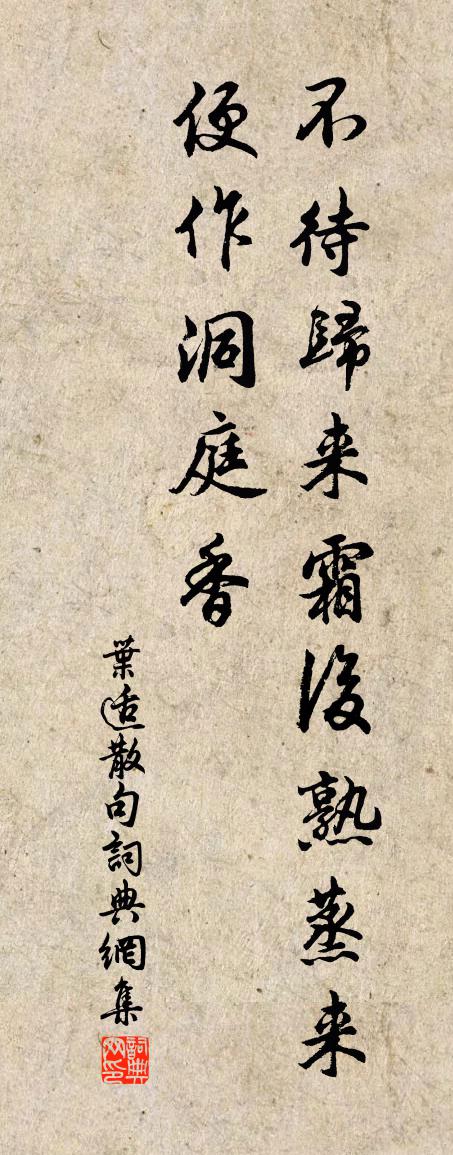 不待歸来霜後熟蒸来
便作洞庭香
葉适散句詞典網集
詞典网印